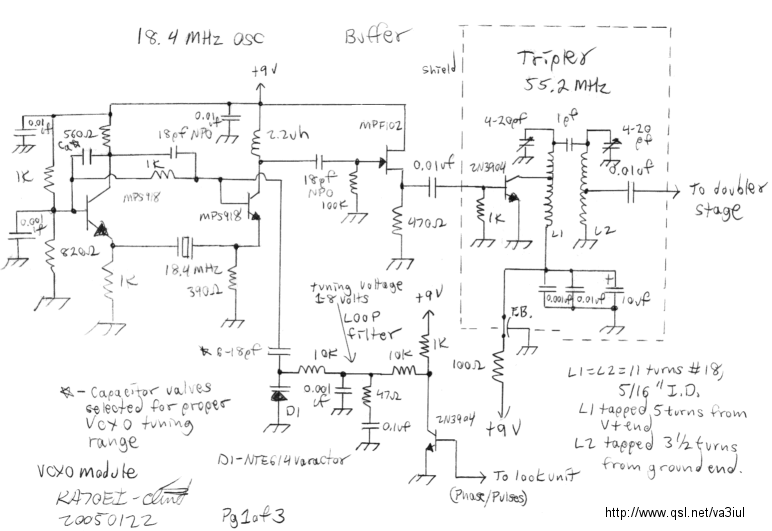 18.4 MHz osc
Buffer
Shield
Tripler
55.2 MHz
+9V
0.01uf
560Ω
Ca*
18pf NPO
0.01uf
2.2uh
MPF102
4-20pf
1pf
4-20pf
1K
1K
MPS918
MPS918
18pf
NPO
100K
0.01uf
2N3904
0.01uf
To doubler
stage
1K
470Ω
L1
L2
0.001uf
820Ω
1K
18.4 MHz
390Ω
tuning voltage
1-8 volts
Loop
filter
+9V
0.001uf
0.01uf
10uf
F.B.
1K
100Ω
+9V
* 6-18pf
10K
10K
0.001uf
47Ω
0.1uf
D1
2N3904
L1=L2=11 turns #18,
5/16" I.D.
L1 tapped 5 turns from
V+ end
L2 tapped 3 1/2 turns
from ground end.
* - Capacitor valves
selected for proper
VCXO tuning
range
D1-NTE614 varactor
To lock unit
(Phase/Pulses)
VCXO module
KA7OEI - Clint
20050122
Pg 1 of 3
http://www.qsl.net/va3iul